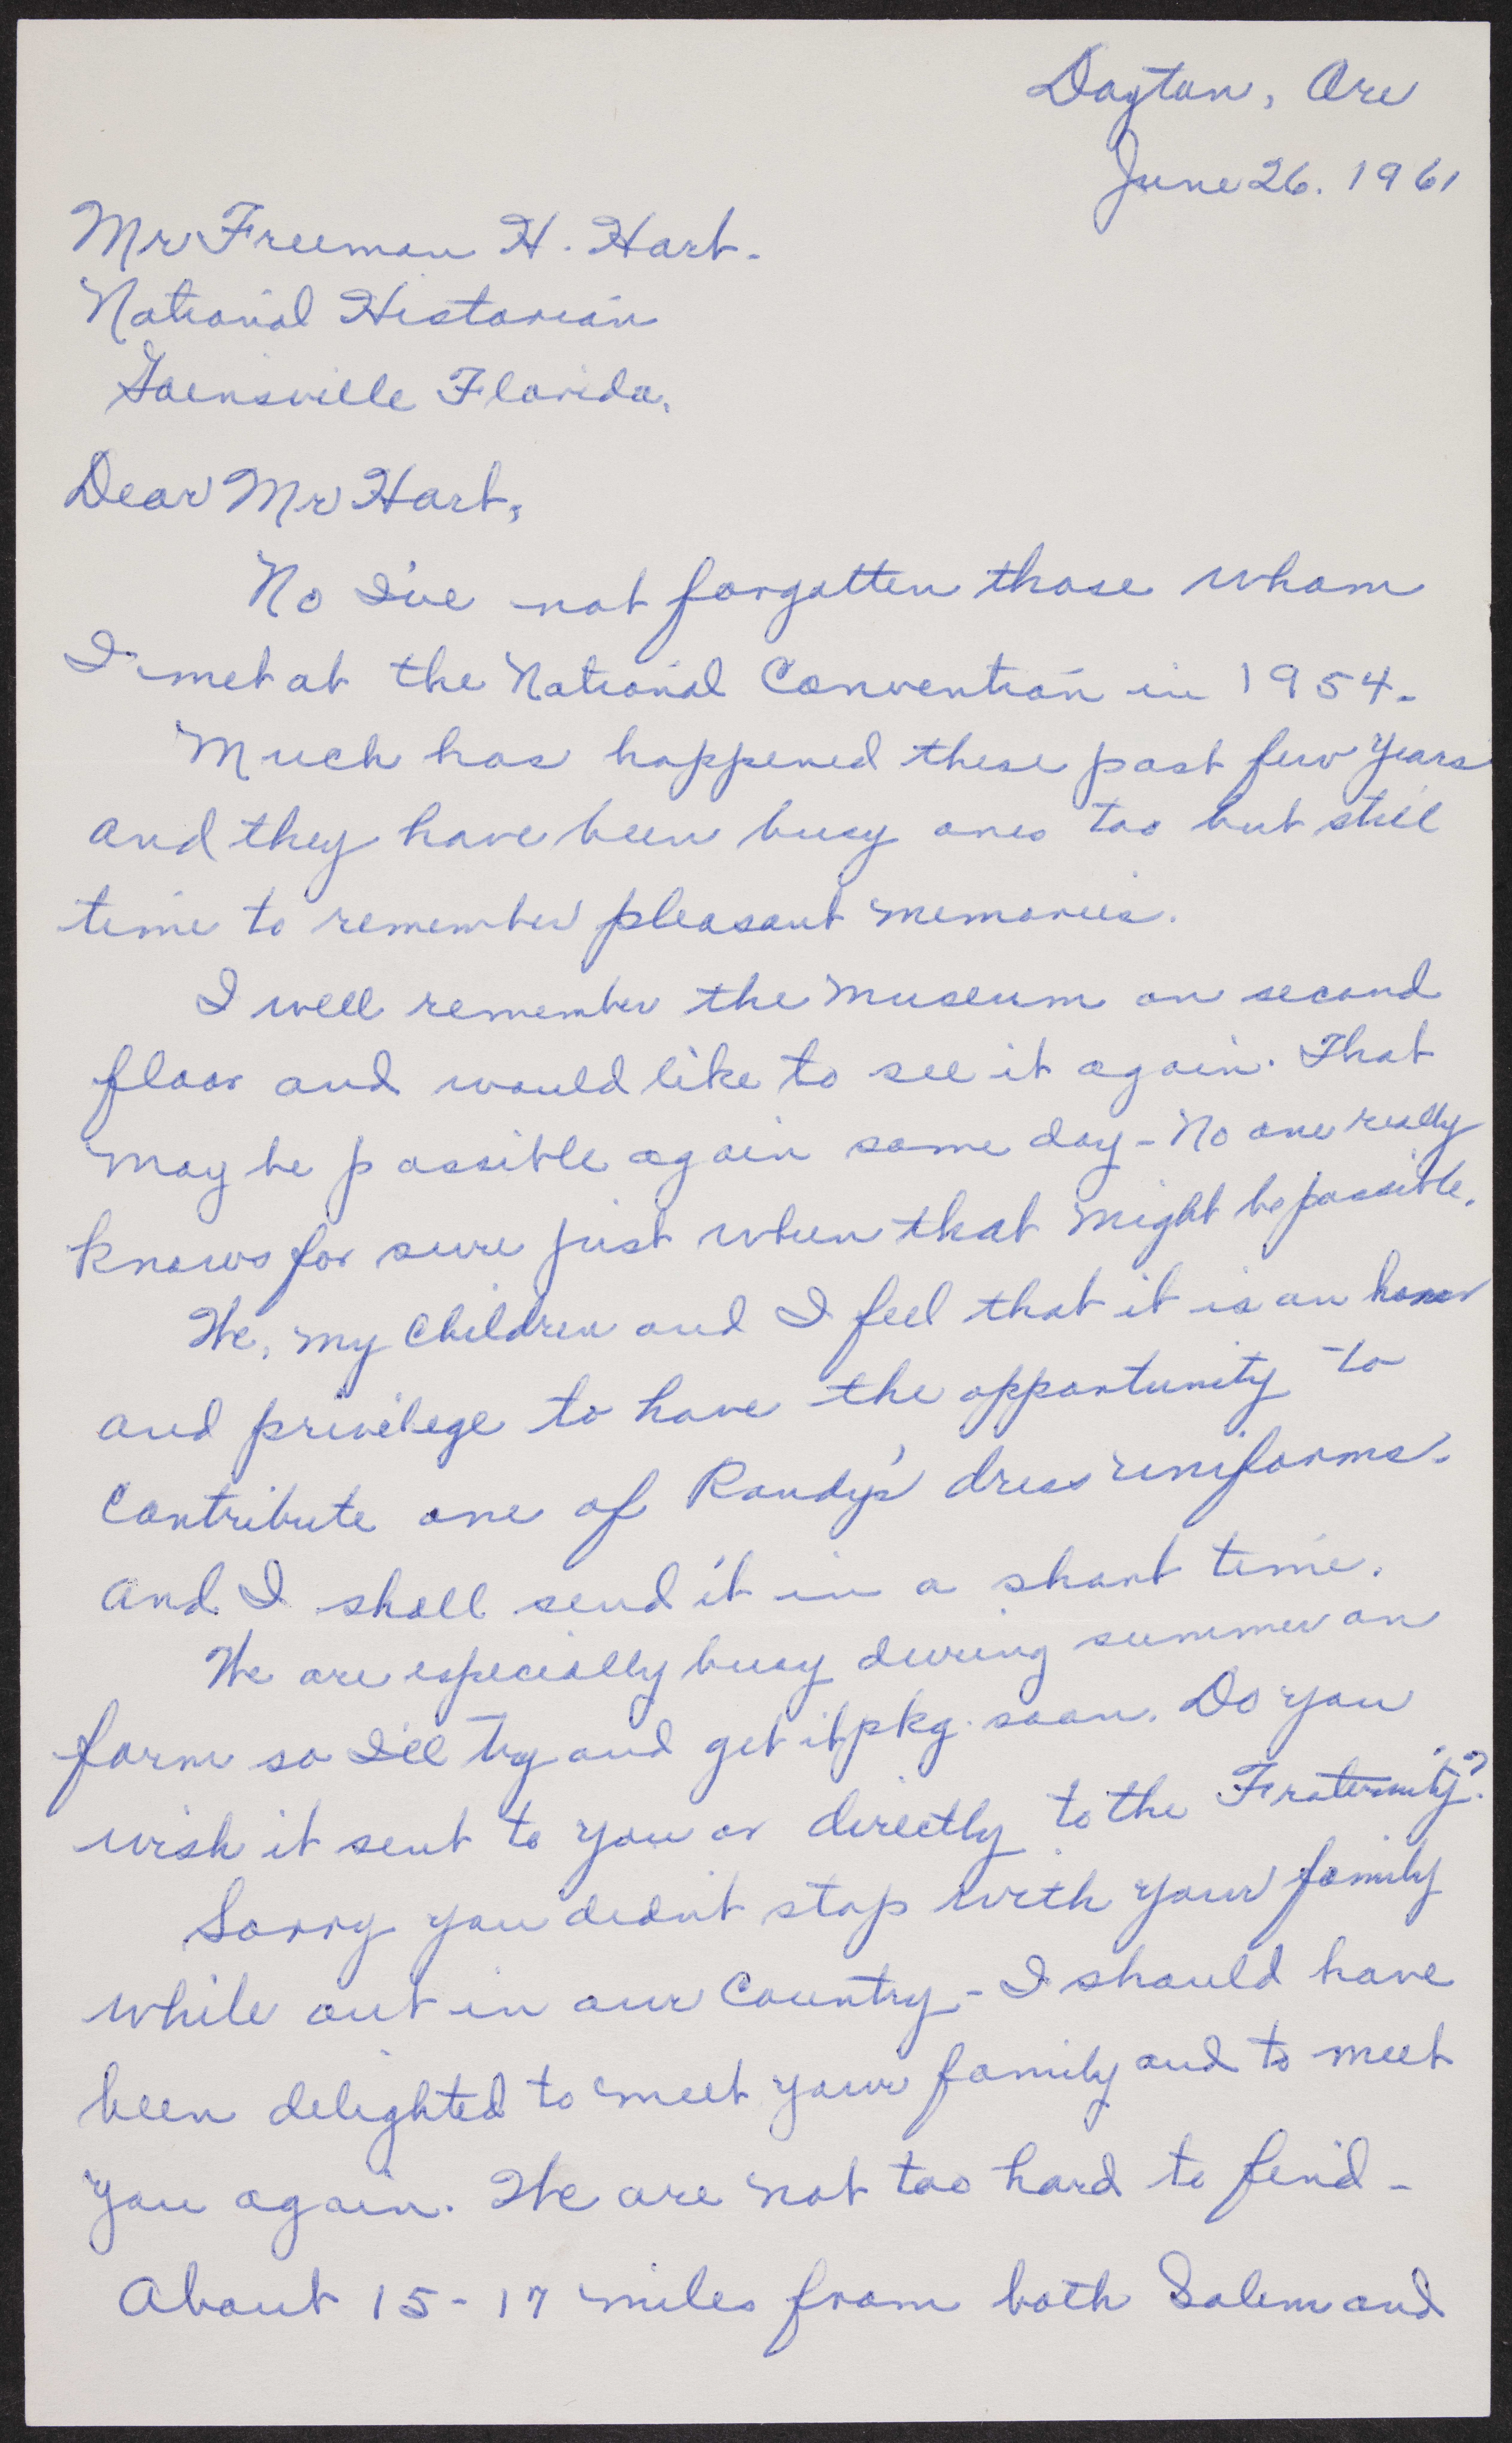 Dayton, Ore
June 26. 1961
Mr Freeman H. Hart.
National Historian
Gainsville Florida.
Dear Mr Hart,
No I've not forgotten those whom
I met at the National Convention in 1954.
Much has happened these past few years
and they have been busy ones too but still
time to remember pleasant memories.
I well remember the museum on second
floor and would like to see it again. That
may be possible again some day - No one really
knows for sure just when that might be possible.
We, my children and I feel that it is an honor
and privilege to have the opportunity to
contribute one of Randy's dress uniforms.
And I shall send it in a short time.
We are especially busy during summer on
farm so I'll try and get it pkg. soon. Do you
wish it sent to you or directly to the Fraternity?
Sorry you didn't stop with your family
while out in our Country - I should have
been delighted to meet your family and to meet
you again. We are not too hard to find -
About 15-17 miles from both Salem and